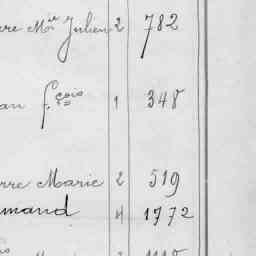 rre Mie Julien 2 782
an fçois 1 348
rre Marie 2 519
mand 4 1772